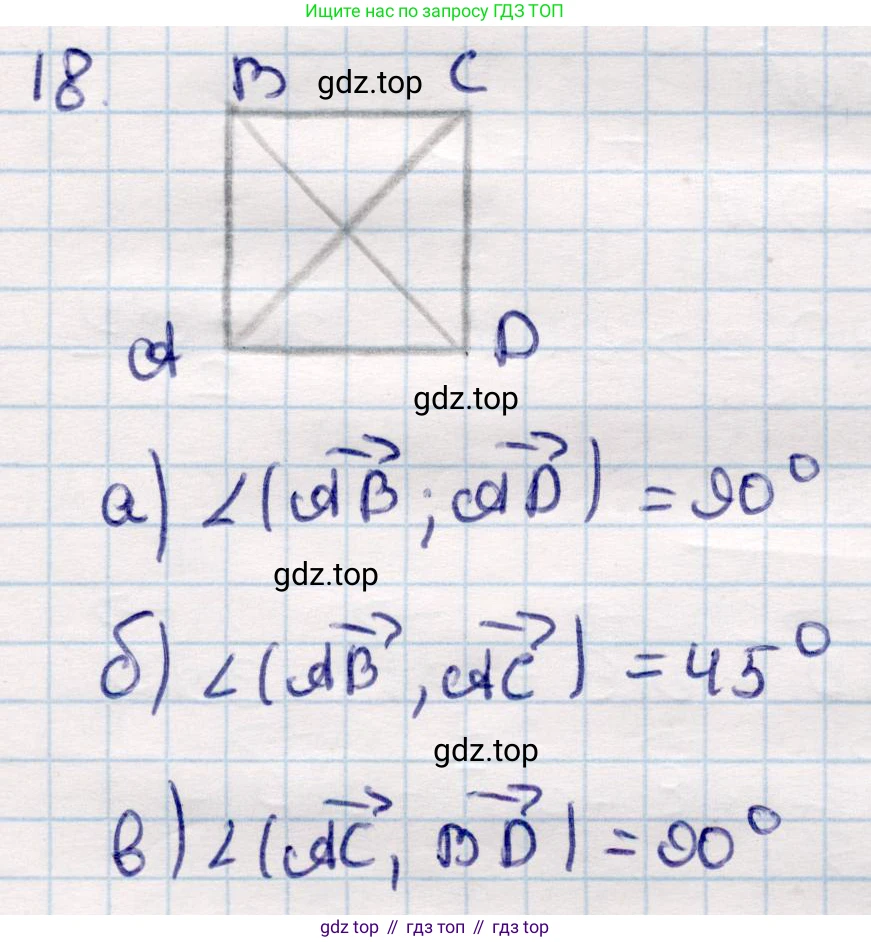 Ищите нас по запросу ГДЗ ТОП
18. B gdz.top C
A D
gdz.top
а) ∠(AB; AD) = 90°
gdz.top
б) ∠(AB, AC) = 45°
gdz.top
в) ∠(AC, BD) = 90°
gdz top // гдз топ // gdz top